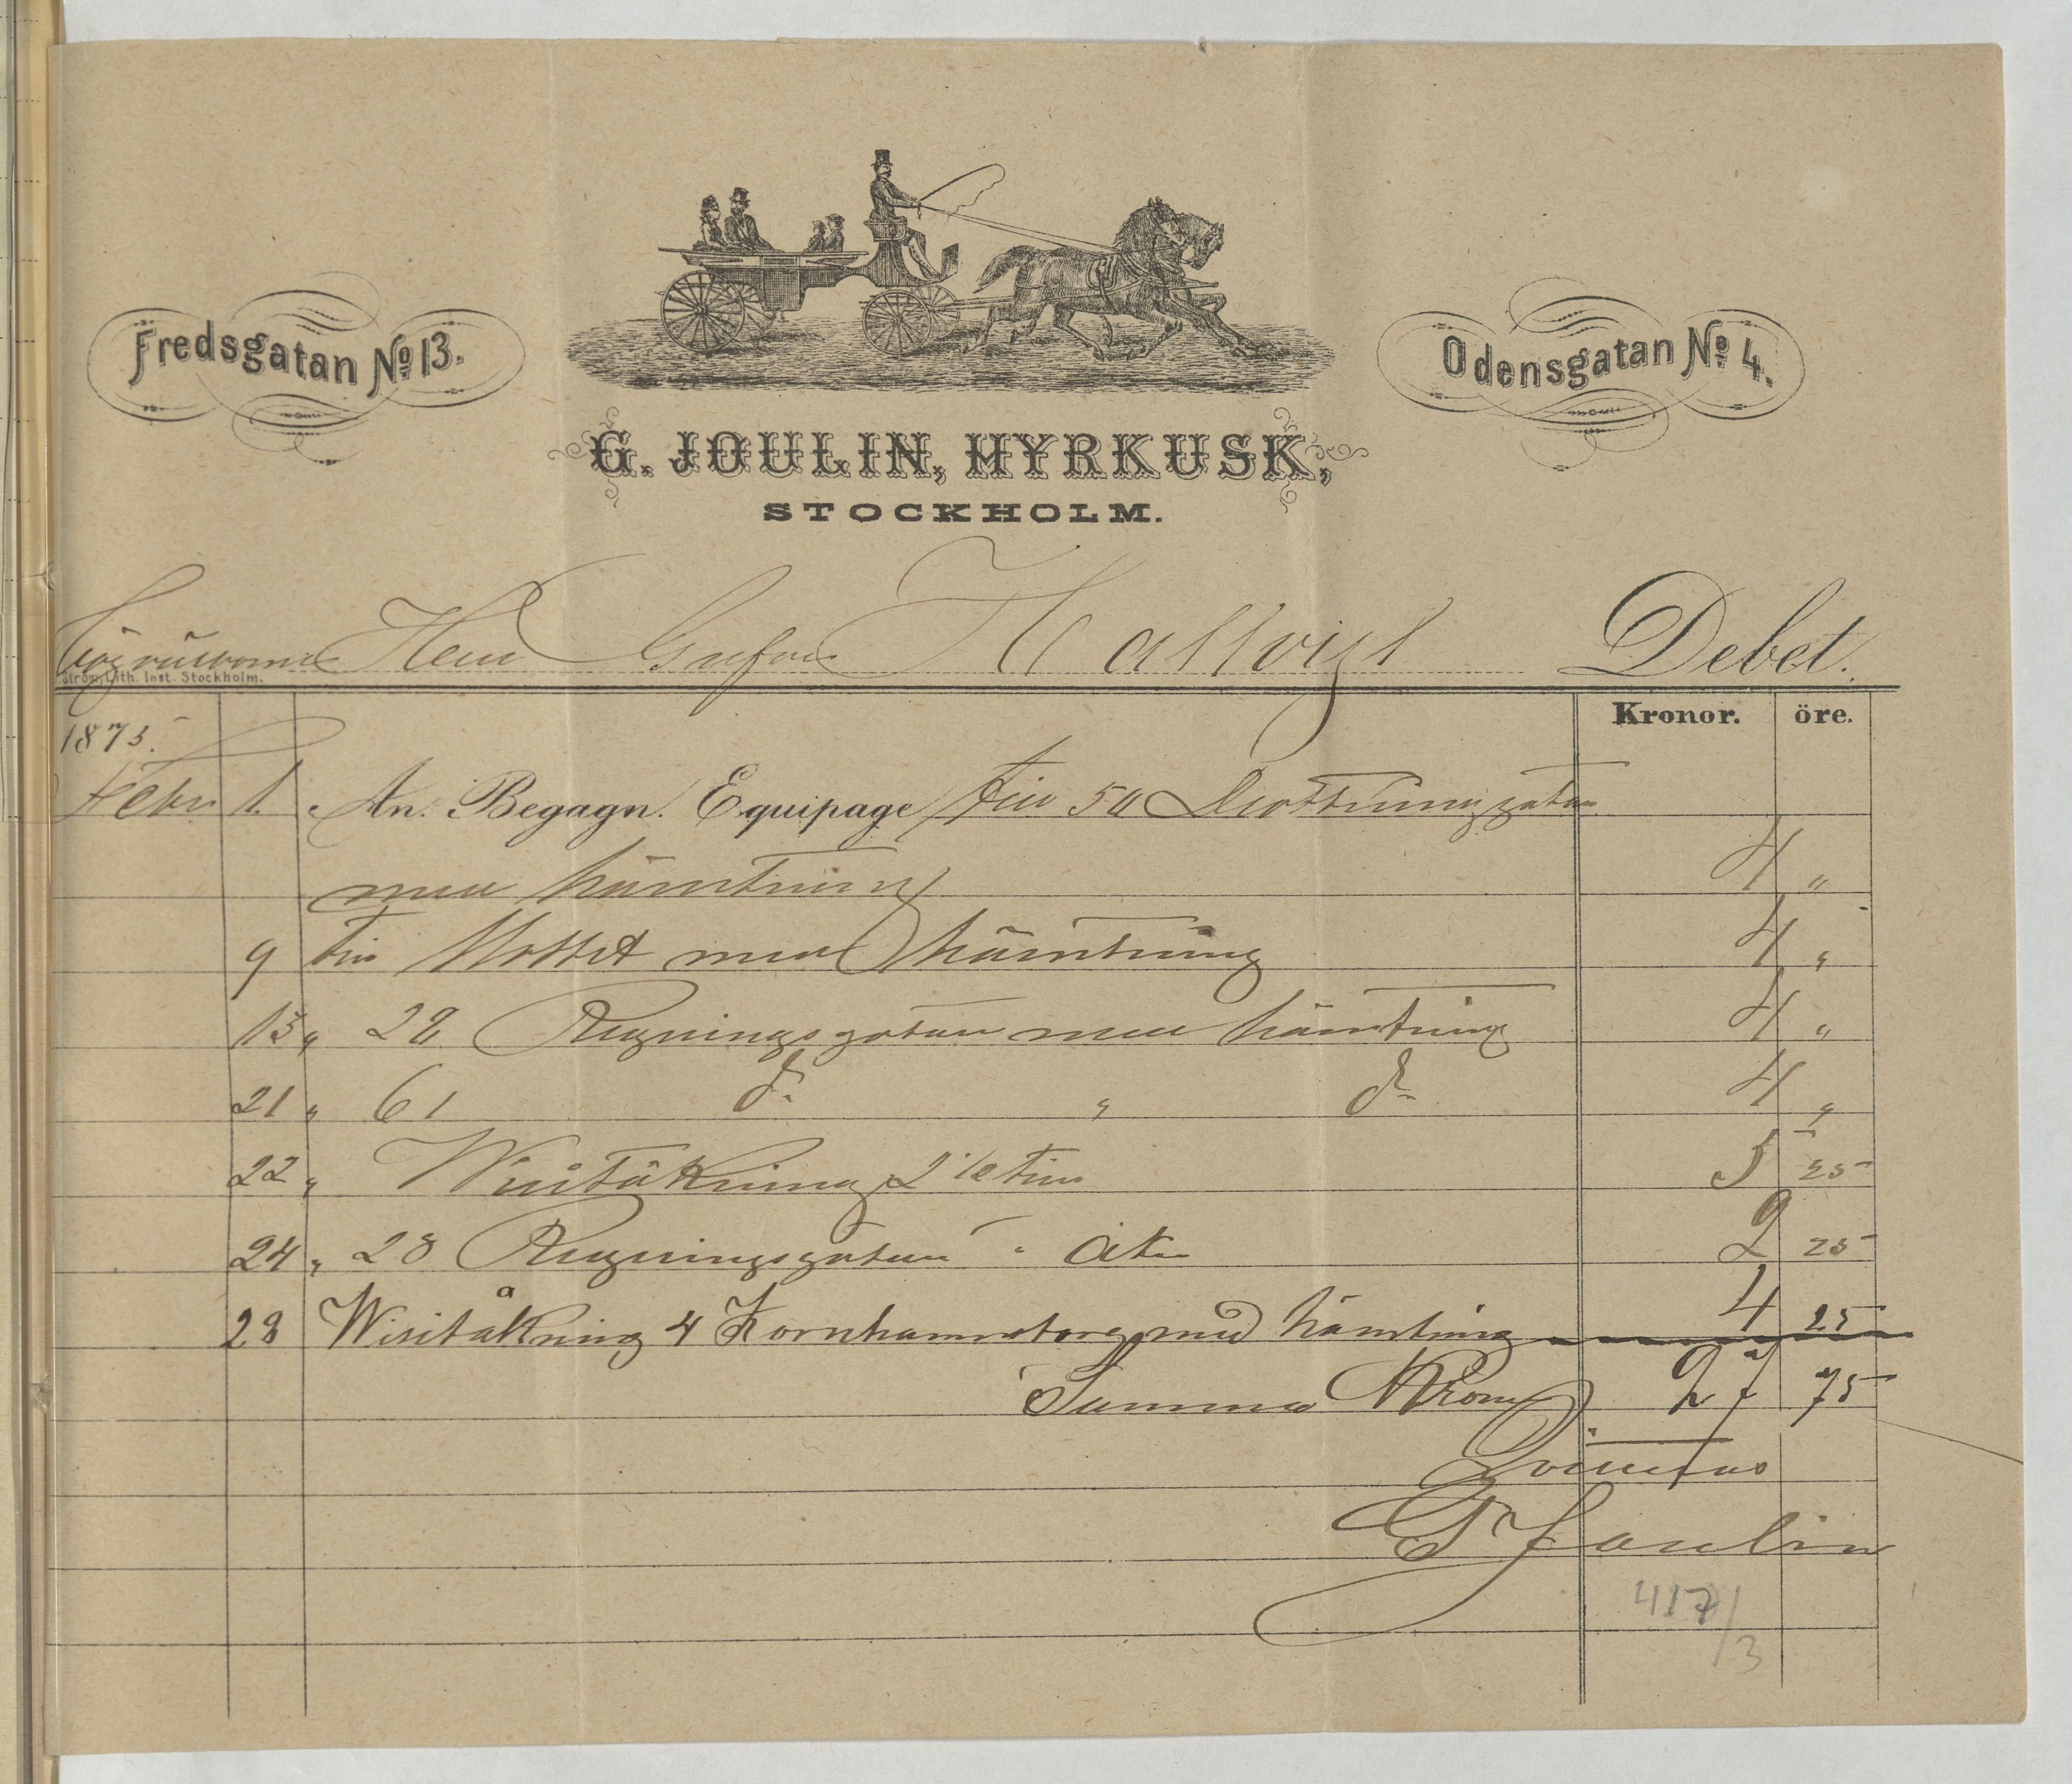 Fredsgatan No 13.
Odensgatan No 4.
G. JOULIN, HYRKUSK,
STOCKHOLM.
Högvälborne Herr Grefve Hallvyl Debet.
Ström, Lith. Inst. Stockholm.
Kronor. öre.
1875.
Febr 1. An. Begagn. Equipage till 50 Drottninggatan
med hämtning 4 "
9 till Slottet med hämtning 4 "
13 " 28 Regeringsgatan med hämtning 4 "
21 " 61 do " do 4 "
22 " Visitåkning 2 1/2 tim 5 25
24 " 28 Regeringsgatan " 2 25
28 Wisitåkning 4 Kornhamnstorg med hämtning 4 25
Summa Kronor 27 75
Qvitteras
G Joulin
417/3